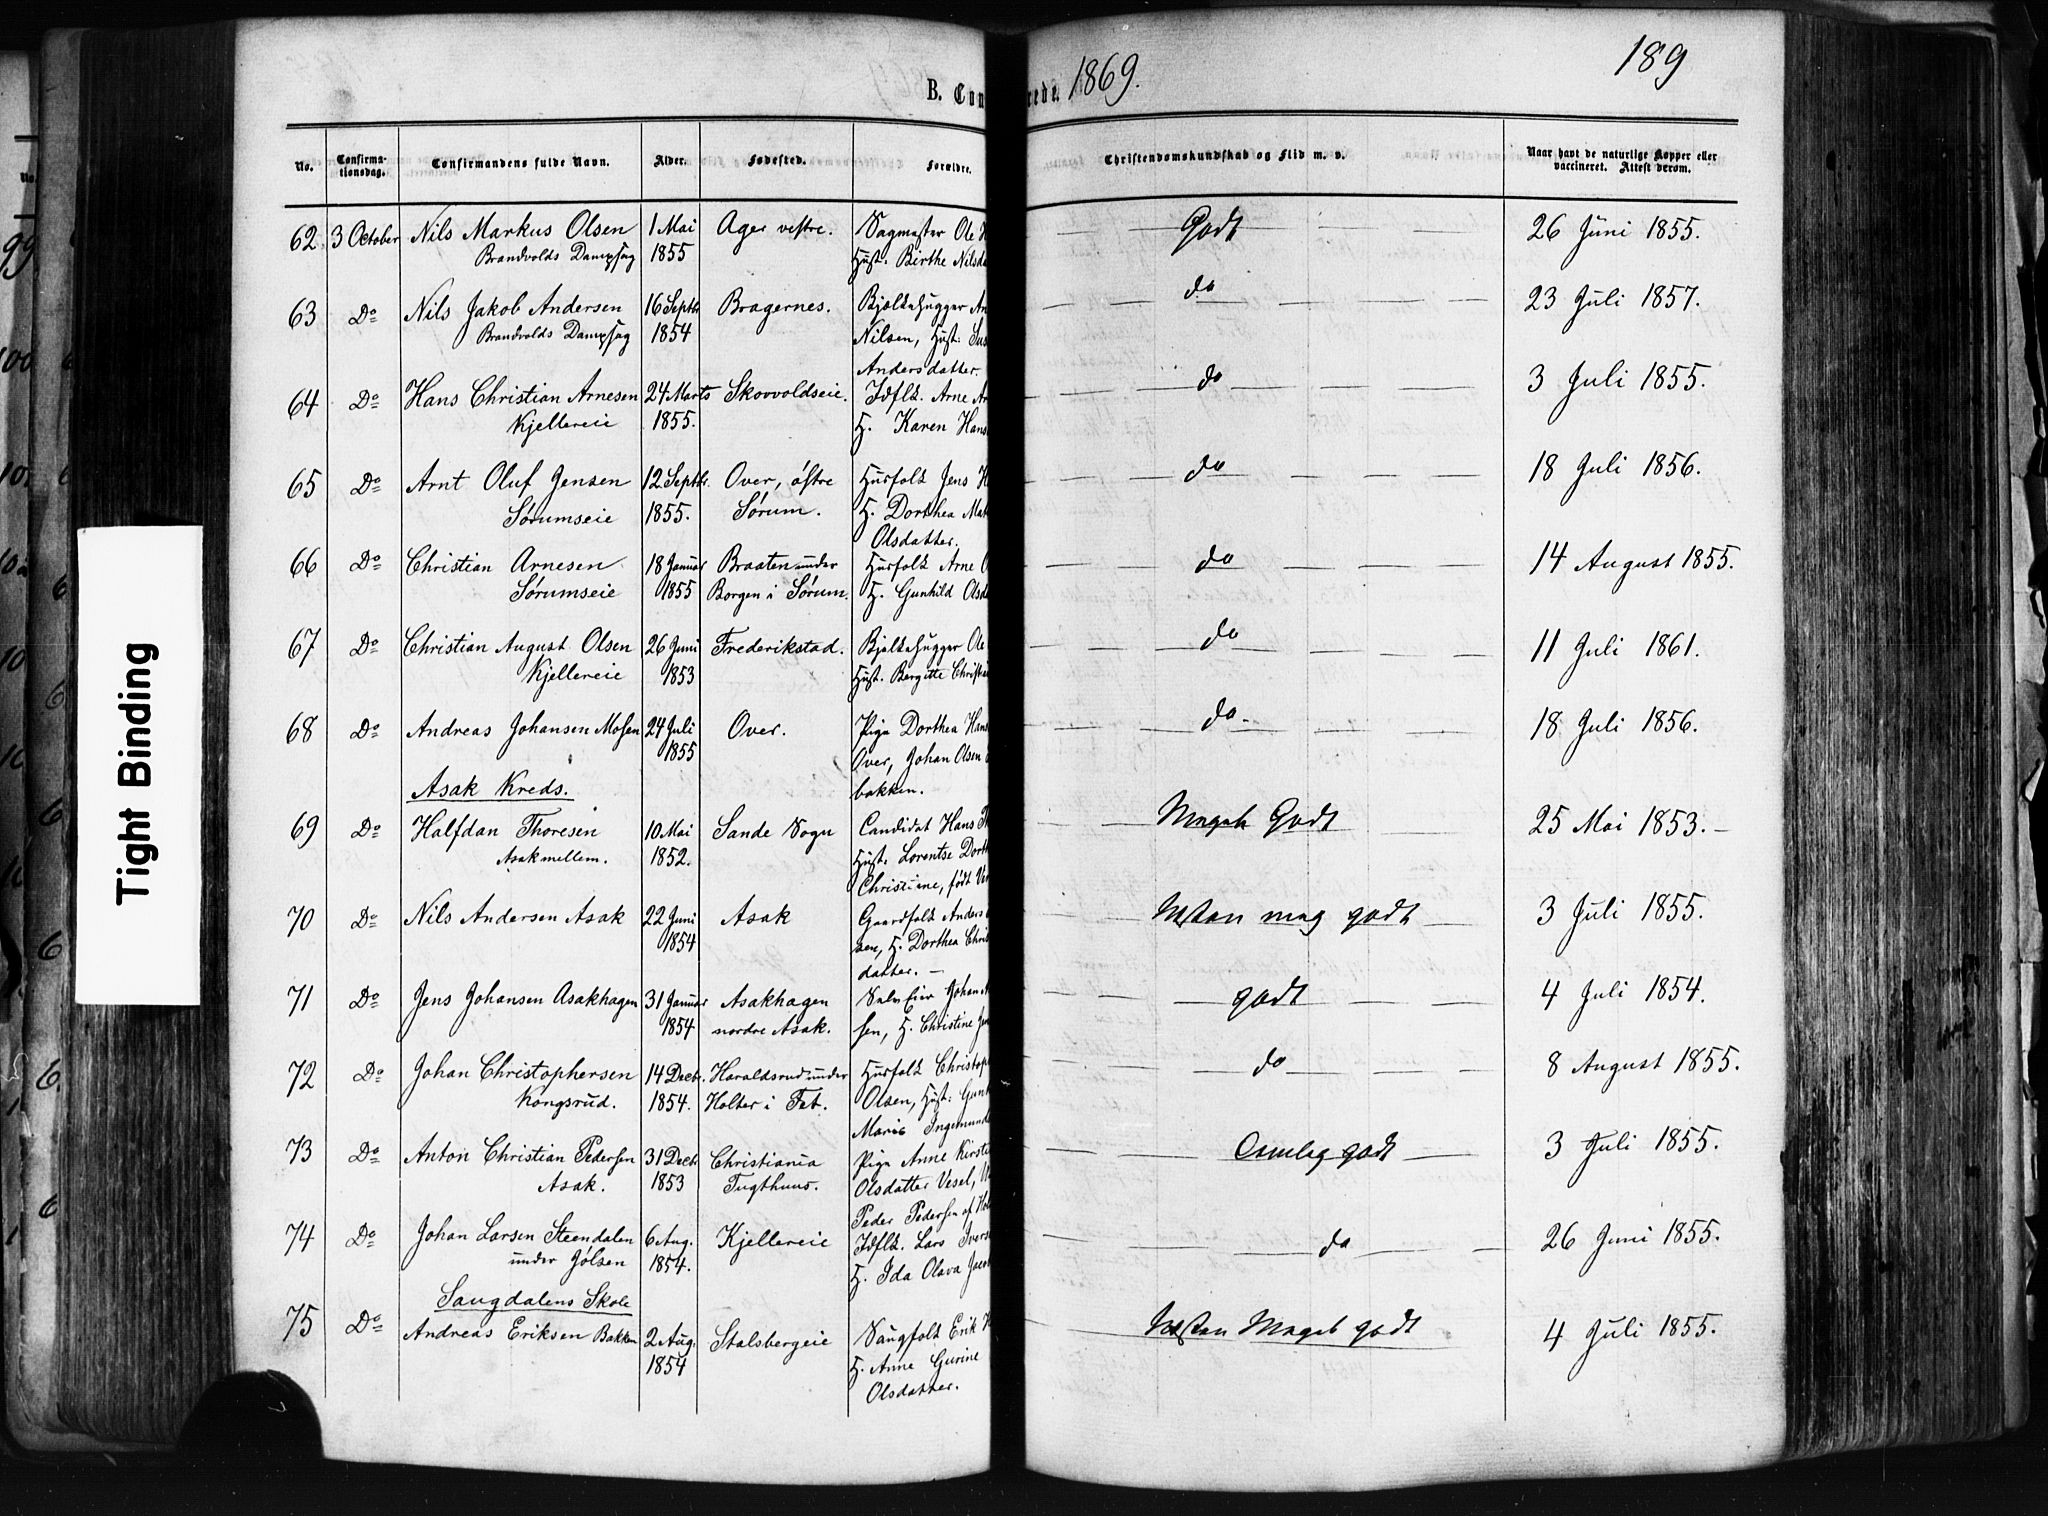 189
B. Con rede. 1869.
No. Confirma-tionsdag. Confirmandens fulde Navn. Alder. Fødested. Forældre. Christendomskundskab og Flid m. v. Naar havt de naturlige Kopper eller vaccineret. Attest derom.
62 3 October Nils Markus Olsen 1 Mai Ager vestre. Sagmester Ole Godt 26 Juni 1855.
Brandvolds Dampsag 1855 Hust. Birthe Nilsda
63 Do Nils Jakob Andersen 16 Septbr. Bragernes. Bjelkehugger An do 23 Juli 1857.
Brandvolds Dampsag 1854 Nilsen, Hust: Sus
Andersdatter.
64 Do Hans Christian Arnesen 24 Marts Skovvoldseie. Idflk. Arne Ar do 3 Juli 1855.
Kjellereie 1855. H. Karen Hans
65 Do Arnt Oluf Jensen 12 Septbr. Over, østre Husfolk Jens H do 18 Juli 1856.
Sørumseie 1855. Sørum. H. Dorthea Mat
Olsdatter.
66 Do Christian Arnesen 18 Januar Braaten under Husfolk Arne O do 14 August 1855.
Sørumseie 1855 Borgen i Sørum. H. Gunhild Olsd
67 Do Christian August Olsen 26 Juni Frederikstad. Bjelkehugger Ole do 11 Juli 1861.
Kjellereie 1853 Hust. Bergitte Christi
68 Do Andreas Johansen Mosen 24 Juli Over. Pige Dorthea Hans do 18 Juli 1856.
1855 Over, Johan Olsen
Asak Kreds. bakken.
69 Do Halfdan Thoresen 10 Mai Sande Sogn Candidat Hans Th Meget Godt 25 Mai 1853.
Asak mellem. 1852. Hust. Lorentse Dorth
Christine, født Ve
70 Do Nils Andersen Asak 22 Juni Asak Gaardfolk Anders Næsten meg godt 3 Juli 1855.
1854 sen, H. Dorthea Chris
datter.
71 Do Jens Johansen Asakhagen 31 Januar Asakhagen Selveier Johan godt 4 Juli 1854.
1854 nordre Asak. sen, H. Christine Jen
72 Do Johan Christophersen 14 Decbr. Haraldsrud under Husfolk Christop do 8 August 1855.
Kongsrud. 1854. Holter i Fet. Olsen, Hust: Gun
Marie Ingemund
73 Do Anton Christian Pedersen 31 Decbr Christiania Pige Anne Kirsti Temmelig godt 3 Juli 1855.
Asak. 1853 Tugthuus. Olsdatter Vesel,
Peder Pedersen af Hol
74 Do Johan Larsen Steendalen 6 Aug. Kjellereie Idflk. Lars Iverse do 26 Juni 1855.
under Gjølsen 1854. H. Ida Olava Jacob
Saugdalens Skole
75 Do Andreas Eriksen Bakken 2 Aug. Stalsbergeie Saugfolk Erik H Næsten Meget godt 4 Juli 1855.
1854 H. Anne Gurine
Olsdatter.
Tight Binding